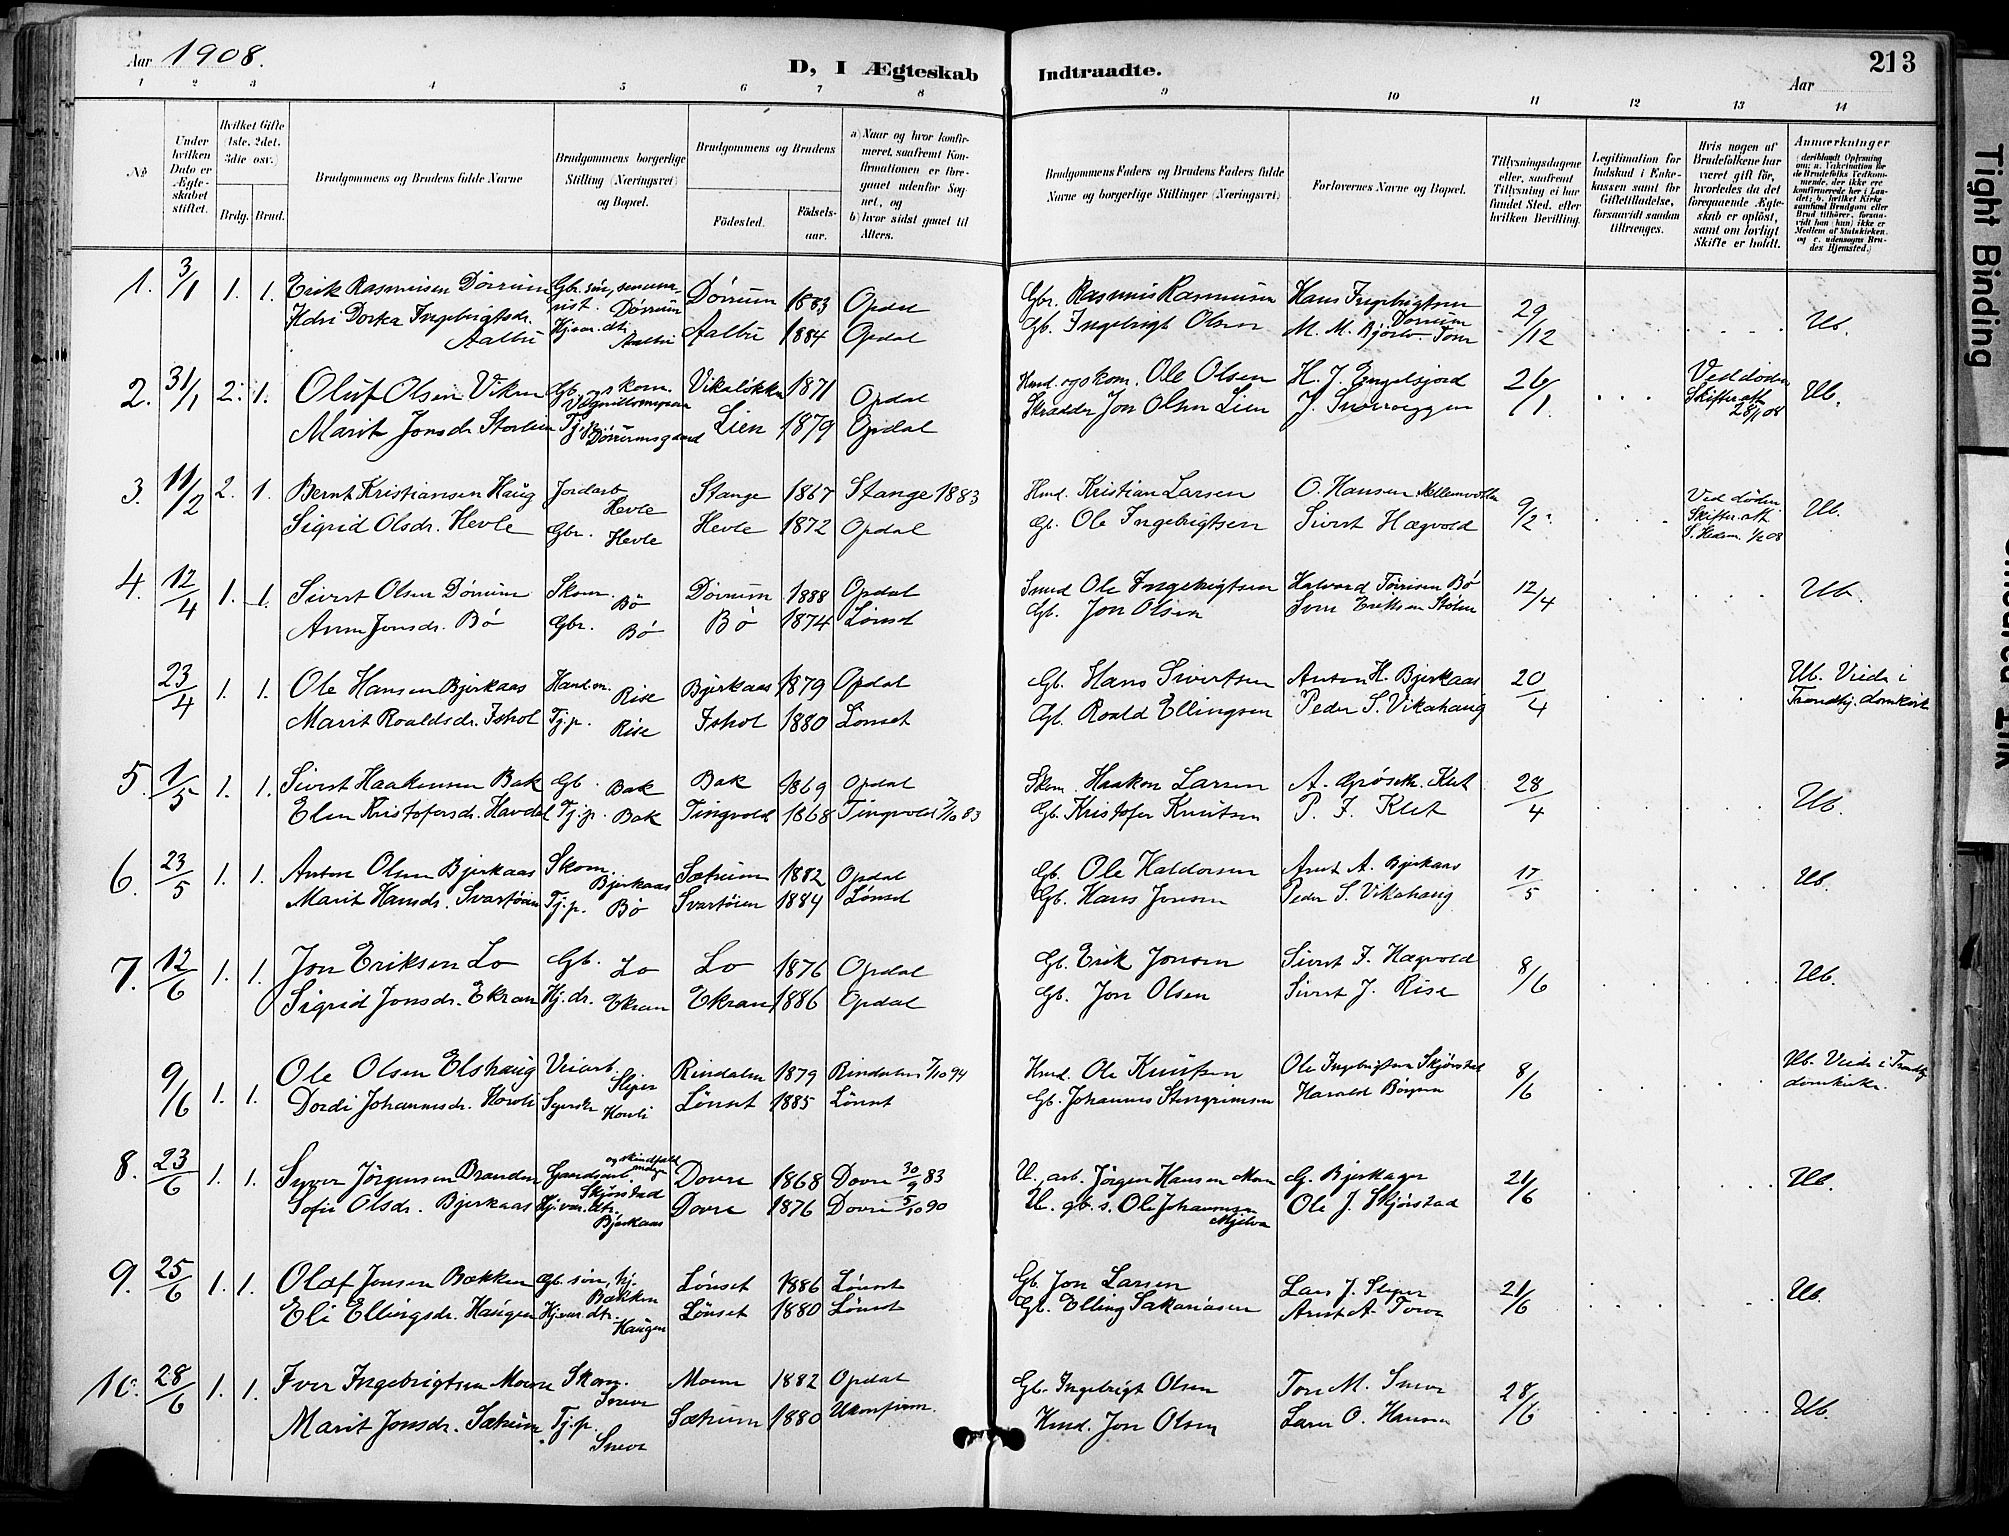 Aar 1908.
D, I Ægteskab Indtraadte.
Aar
213
1 2 3 4 5 6 7 8 9 10 11 12 13 14
No
Under hvilken Dato er Ægteskabet stiftet.
Hvilket Gifte (1ste, 2det, 3die osv.)
Brdg. Brud.
Brudgommens og Brudens fulde Navne
Brudgommens borgerlige Stilling (Næringsvei) og Bopæl.
Brudgommens og Brudens
Fødested.
Fødselsaar.
a) Naar og hvor konfirmeret, saafremt Konfirmationen er foregaaet udenfor Sognet, og
b) hvor sidst gaaet til Alters.
Brudgommens Faders og Brudens Faders fulde Navne og borgerlige Stillinger (Næringsvei)
Forlovernes Navne og Bopæl.
Tillysningsdagene eller, saafremt Tillysning ei har fundet Sted, efter hvilken Bevilling.
Legitimation for Indskud i Enkekassen samt for Giftetilladelse, forsaavidt saadan tiltrænges.
Hvis nogen af Brudefolkene har været gift før, hvorledes da det foregaaende Ægteskab er opløst, samt om lovligt Skifte er holdt.
Anmærkninger
1. 3/1 1. 1. Erik Rasmusen Dørrum Gbr. søn, Dørrum Dørrum 1883 Opdal Gbr. Rasmus Rasmusen Hans Ingebrigtsen Dørrum 29/12 Ub.
Ingebrigtsdr. Aalbu Hj.vær. dtr. Aalbu Aalbu 1884 Opdal Gb. Ingebrigt Olsen M. M.
2. 31/1 2. 1. Oluf Olsen Viken Gb. og skom. Vikaløkken 1871 Opdal Hmd. og skom. Ole Olsen H. J. Engelsjord 26/1. Ved døden Skifteratt. 28/1 08 Ub.
Marit Jonsdr. Storlien Lien 1879 Opdal Skrædder Jon Olsen Lien J. Snoeveggen
3. 11/2 2. 1. Bernt Kristiansen Haug Jordarb. Hevle Stange 1867 Stange 1883 Hmd. Kristian Larsen O. Hansen Mellemvolden 9/2 Ved døden Skifteratt. Ub.
Sigrid Olsdr. Hevle Gbr. Hevle Hevle 1872 Opdal Gb. Ole Ingebrigtsen Sivert Hægvold
4. 12/4 1. 1. Sivert Olsen Dørrum Skom. Bø Dørrum 1888 Opdal Smed Ole Ingebrigtsen Halvard Tørrisen Bø 12/4 Ub.
Anne Jonsdr. Bø Gbr. Bø Bø 1874 Lønset Gb. Jon Olsen
23/4 1. 1. Ole Hansen Bjerkaas Hand.m. Rise Bjerkaas 1879 Opdal Gb. Hans Sivertsen Anton H. Bjerkaas 20/4 Ub. Viede i
Marit Roaldsdr. Ishol Tj.p. Rise Ishol 1880 Lønset Gb. Roald Ellingsen Peder S. Vikahaug Trondhj. domkirke
5. 1/5 1. 1. Sivert Haakensen Bak Gb. Bak Bak 1869 Opdal Skom. Haakon Larsen A. Grøseth. Klet 28/4 Ub.
Elen Kristofersdr. Havdal Tj.p. Bak Tingvold 1868 Tingvold 7/10 83 Gb. Kristofer Knutsen P. F. Klet
6. 23/5 1. 1. Anton Olsen Bjerkaas Skom. Bjerkaas Sætrum 1882 Opdal Gb. Ole Haldorsen Arnt A. Bjerkaas 17/5 Ub.
Marit Hansdr. Svartøien Tj.p. Bø Svartøien 1884 Lønset Gb. Hans Jonsen Peder S. Vikahaug
7. 12/6 1. 1. Jon Eriksen Lo Gb. Lo Lo 1876 Opdal Gb. Erik Jonsen Sivert F. Hægvold 8/6 Ub.
Sigrid Jonsdr. Ekran Hj.dr. Ekran Ekran 1886 Opdal Gb. Jon Olsen Sivert J. Rise
9/6 1. 1. Ole Olsen Elshaug Veiarb. Sliper Rindalen 1879 Rindalen 7/10 94 Hmd. Ole Knutsen Ole Ingebrigtsen Skjørstad 8/6 Ub. Viede i Trondhj.
Dordi Johannesdr. Horvli Syerske Horvli Lønset 1885 Lønset Gb. Johannes Steingrimsen Harald Bøgren domkirke.
8. 23/6 1. 1. Syver Jørgensen Branden og skindfeldmager Skjørstad Dovre 1868 Dovre 30/9 83 U. arb. Jørgen Hansen Moen G. Bjerkager 21/6 Ub.
Sofie Olsdr. Bjerkaas Hj.vær. dtr. Bjerkaas Dovre 1876 Dovre 5/10 90 U. gb. s. Ole Johannesen Mjelva Ole J. Skjørstad
9. 25/6 1. 1. Olaf Jonsen Bækken Gb. søn, hj. Bækken Lønset 1886 Lønset Gb. Jon Larsen Lars J. Sliper 21/6 Ub.
Eli Ellingsdr. Haugen Hj.vær. dtr. Haugen Lønset 1880 Lønset Gb. Elling Sakariasen Arnt A. Torve
10. 28/6 1. 1. Iver Ingebrigtsen Moene Skom. Sneve Moene 1882 Opdal Gb. Ingebrigt Olsen Tore M. Sneve 28/6 Ub.
Marit Jonsdr. Sætrum Tj.p. Sneve Sætrum 1880 Ukonfirm. Hmd. Jon Olsen Lars O. Hansen
Tight Binding